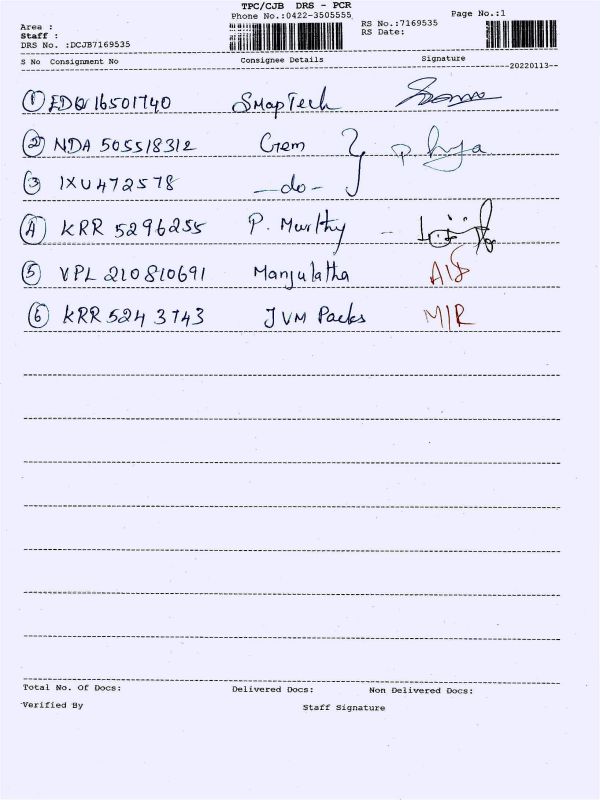 TPC/CJB DRS - PCR
Phone No.:0422-3505555
Page No.:1
Area :
RS No.:7169535
Staff :
RS Date:
DRS No. :DCJB7169535
S No Consignment No Consignee Details Signature
20220113
1 EDQ 16501740 SMapTech
2 NDA 505518312 Gem
3 IXU472578 -do-
4 KRR 5296255 P. Murthy -
5 VPL 210810691 Manjulatha
6 KRR 5243743 JVM Packs M/R
Total No. Of Docs: Delivered Docs: Non Delivered Docs:
Verified By Staff Signature